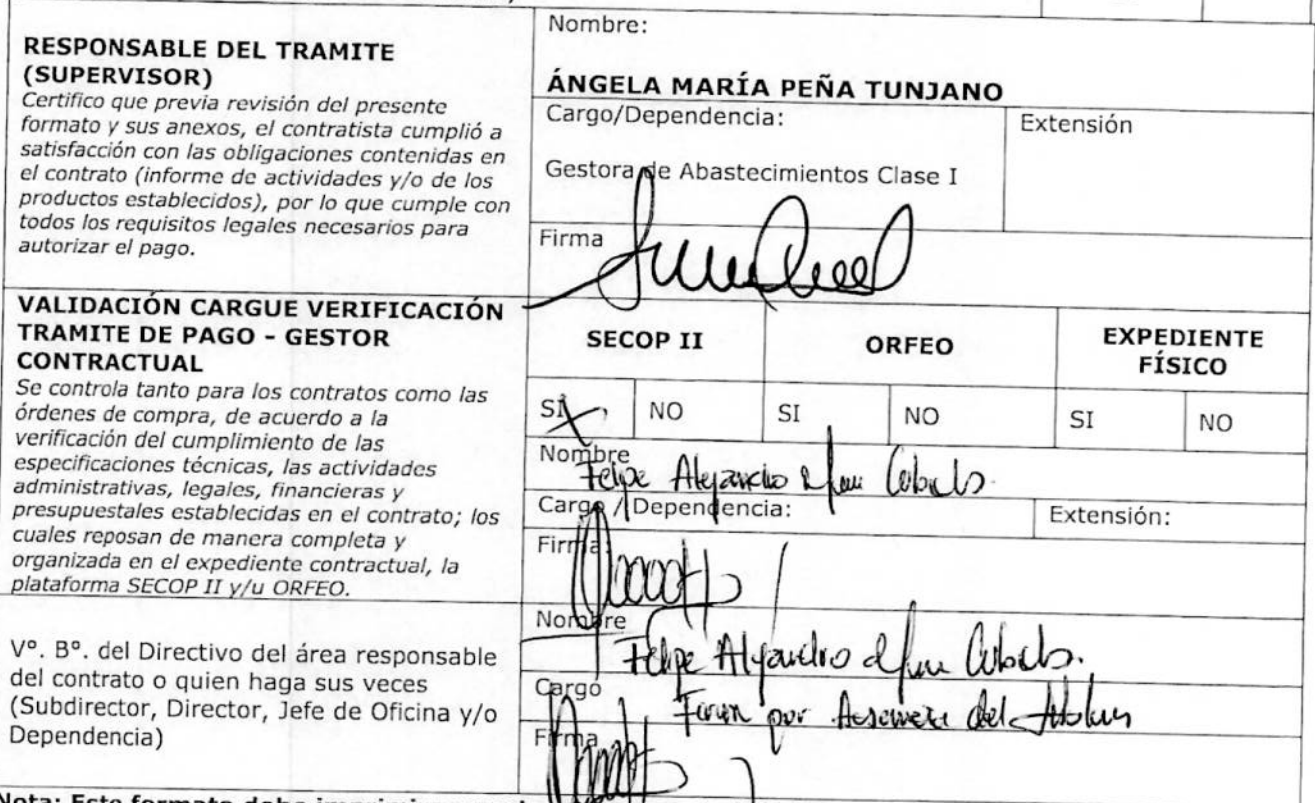 RESPONSABLE DEL TRAMITE
(SUPERVISOR)
Certifico que previa revisión del presente
formato y sus anexos, el contratista cumplió a
satisfacción con las obligaciones contenidas en
el contrato (informe de actividades y/o de los
productos establecidos), por lo que cumple con
todos los requisitos legales necesarios para
autorizar el pago.
Nombre:
ÁNGELA MARÍA PEÑA TUNJANO
Cargo/Dependencia:
Extensión
Gestora de Abastecimientos Clase I
Firma
VALIDACIÓN CARGUE VERIFICACIÓN
TRAMITE DE PAGO - GESTOR
CONTRACTUAL
Se controla tanto para los contratos como las
órdenes de compra, de acuerdo a la
verificación del cumplimiento de las
especificaciones técnicas, las actividades
administrativas, legales, financieras y
presupuestales establecidas en el contrato; los
cuales reposan de manera completa y
organizada en el expediente contractual, la
plataforma SECOP II y/u ORFEO.
SECOP II
ORFEO
EXPEDIENTE
FÍSICO
SI X
NO
SI
NO
SI
NO
Nombre
Felipe Alejandro
Cargo / Dependencia:
Extensión:
Firma:
Vº. Bº. del Directivo del área responsable
del contrato o quien haga sus veces
(Subdirector, Director, Jefe de Oficina y/o
Dependencia)
Nombre
Felipe Alejandro
Cargo
por del
Firma
Nota: Este formato debe